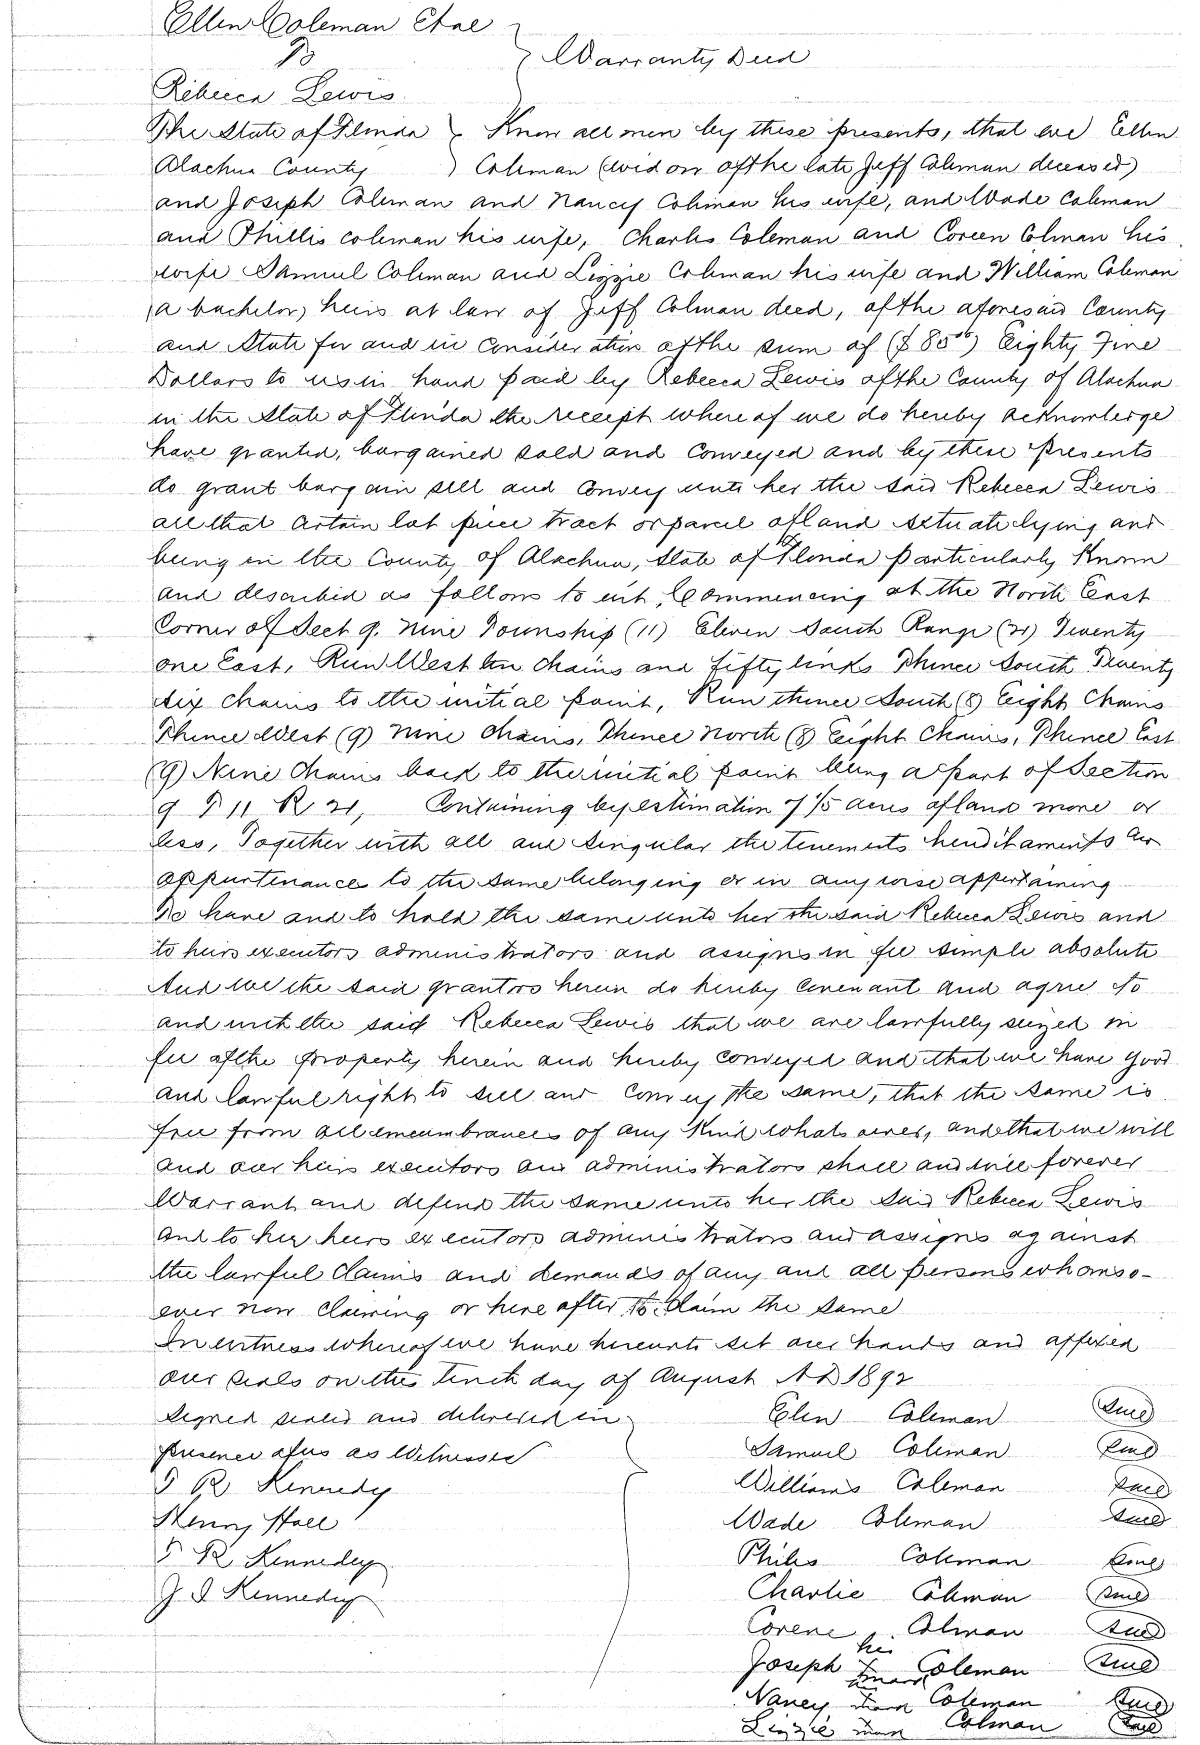 Ellen Coleman Etal
To } Warranty Deed
Rebecca Lewis
The State of Florida } Know all men by these presents, that we Ellen
Alachua County ) Coleman (widow of the late Jeff Coleman deceased)
and Joseph Coleman and Nancy Coleman his wife, and Wade Coleman
and Phillis Coleman his wife, Charles Coleman and Coreen Colman his
wife Samuel Coleman and Lizzie Coleman his wife and William Coleman
(a bachelor) heirs at law of Jeff Colman decd, of the aforesaid County
and State for and in consideration of the sum of ($85⁰⁰) Eighty Five
Dollars to us in hand paid by Rebecca Lewis of the County of Alachua
in the State of Florida the receipt whereof we do hereby acknowledge
have granted, bargained sold and conveyed and by these presents
do grant bargain sell and convey unto her the said Rebecca Lewis
all that certain lot piece tract or parcel of land situate lying and
being in the County of Alachua, State of Florida particularly Known
and described as follows to wit, Commencing at the North East
Corner of Sect 9. Nine Township (11) Eleven South Range (21) Twenty
one East, Run West ten chains and fifty links Thence South Twenty
six chains to the initial point, Run thence South (8) Eight Chains
Thence West (9) Nine Chains, Thence North (8) Eight Chains, Thence East
(9) Nine Chains back to the initial point being a part of Section
9 T 11 R 21, Containing by estimation 7 1/5 acres of land more or
less, Together with all and singular the tenements hereditaments and
appurtenances to the same belonging or in anywise appertaining
To have and to hold the same unto her the said Rebecca Lewis and
to heirs executors administrators and assigns in fee simple absolute
And we the said grantors herein do hereby covenant and agree to
and with the said Rebecca Lewis that we are lawfully seized in
fee of the property herein and hereby conveyed and that we have good
and lawful right to sell and convey the same, that the same is
free from all emcumbrances of any Kind whatsoever, and that we will
and our heirs executors and administrators shall and will forever
Warrant and defend the same unto her the said Rebecca Lewis
and to her heirs executors administrators and assigns against
the lawful claims and demands of any and all persons whomso-
ever now claiming or here after to claim the same
In witness whereof we have hereunto set our hands and affixed
our seals on this tenth day of August AD 1892
Signed sealed and delivered in Elen Coleman Seal
presence of us as Witnesses Samuel Coleman Seal
T R Kennedy Williams Coleman Seal
Henry Hall Wade Coleman Seal
T R Kennedey Philis Coleman Seal
J I Kennedy Charlie Coleman Seal
Corene Colman Seal
his
Joseph X Coleman Seal
mark
Nancy mark Coleman Seal
Lizzie mark Colman Seal